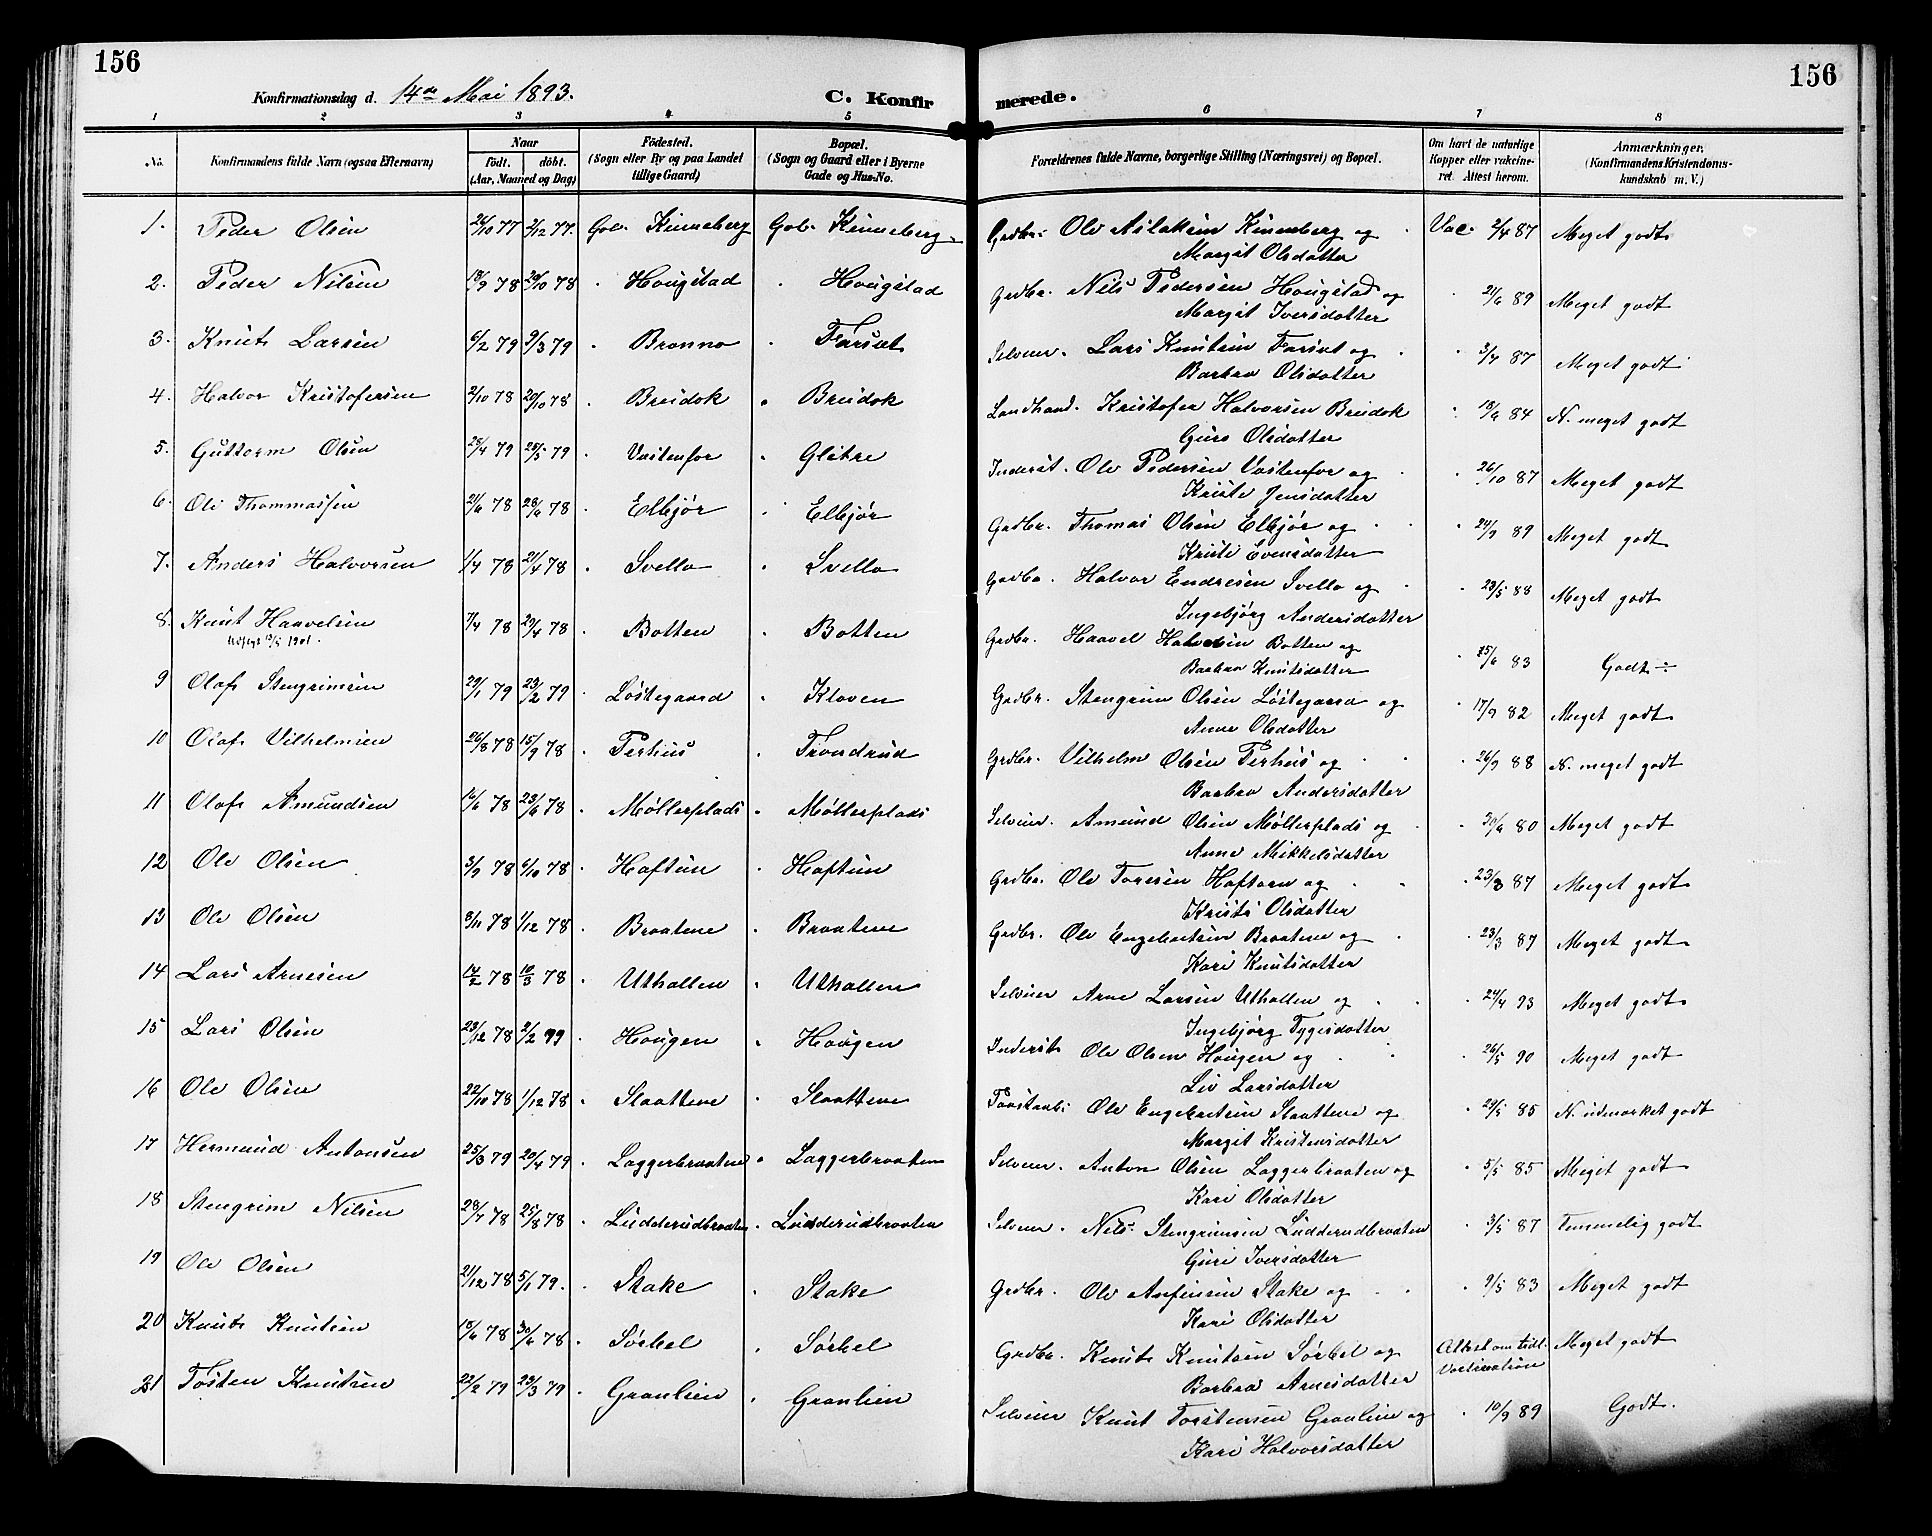 156
156
Konfirmationsdag d. 14de Mai 1893.
C. Konfirmerede.
1 2 3 4 5 6 7 8
No. Konfirmandens fulde Navn (ogsaa Efternavn) Naar født. døbt. (Aar, Maaned og Dag) Födested. (Sogn eller By og paa Landet tillige Gaard) Bopæl. (Sogn og Gaard eller i Byerne Gade og Hus-No. Forældrenes fulde Navne, borgerlige Stilling (Næringsvei) og Bopæl. Om havt de naturlige Kopper eller vakcineret. Attest herom. Anmærkninger. (Konfirmandens Kristendomskundskab m. V.)
1. Peder Olsen 26/10 77 2/12 77. Gol. Kinneberg Gol. Kinneberg Grdbr. Ole Aslaksen Kinneberg og Vac. 2/4 87 Meget godt
Margit Olsdatter
2. Peder Nilsen 18/9 78 20/10 78 Hougstad Hougstad Grdbr. Nils Pedersen Hougstad og 21/6 89 Meget godt
Margit Iversdatter
3. Knut Larsen 6/2 79 9/3 79 Brenno Farset Selveier. Lars Knutsen Farset og 3/4 87 Meget godt
Barbra Olsdatter
4. Halvor Kristofersen 2/10 78 20/10 78 Breidok Breidok Landhand. Kristofer Halvorsen Breidok 18/9 84 N. meget godt
Guro Olsdatter
5. Guttorm Olsen 28/4 79 25/5 79 Vestenfor Glitre Inderst. Ole Pedersen Vestenfor og 26/10 87 Meget godt
Kristi Jensdatter
6. Ole Thommassen 21/6 78 28/6 78 Elbjør Elbjør Grdbr. Thomas Olsen Elbjør og 24/9 89 Meget godt
Kristi Evensdatter
7. Anders Halvorsen 1/4 78 21/4 78 Svello Svello Grdbr. Halvor Endresen Svello og 23/5 88 Meget godt
Ingebjørg Andersdatter
8. Knut Haavelsen 7/4 78 29/4 78 Botten Botten Grdbr. Haavel Halvorsen Botten og 25/6 83 Godt ÷
1901. Barbro Knutsdatter
9 Olaf Stengrimsen 29/1 79 23/2 79 Løstegaard Kloven Grdbr. Stengrim Olsen Løstegaard og 17/9 82 Meget godt
Anne Olsdatter
10 Olaf Vilhelmsen 26/8 78 15/9 78 Perhus Trondrud Grdbr. Vilhelm Olsen Perhus og 26/9 88 N. meget godt
Barbra Andersdatter
11 Olaf Amundsen 16/6 78 23/6 78 Møllerplads Møllerplads Selveier. Amund Olsen Møllerplads og 30/6 80 Meget godt
Anne Mikkelsdatter
12 Ole Olsen 3/9 78 6/10 78 Haftun Haftun Grdbr. Ole Toresen Haftorn og 23/3 87 Meget godt
Kristi Olsdatter
13 Ole Olsen 8/11 78 1/12 78 Braatene Braatene Grdbr. Ole Engebretsen Braatene og 23/3 87 Meget godt
Kari Knutsdatter
14 Lars Arnesen 14/2 78 10/3 78 Uthallen Uthallen Selveier Arne Larsen Uthallen og 24/4 93 Meget godt
Ingebjørg Tygesdatter
15 Lars Olsen 23/12 78 2/2 79 Hougen Hougen Inderst Ole Olsen Hougen og 26/5 90 Meget godt
Liv Larsdatter
16 Ole Olsen 22/10 78 1/12 78 Slaattene Slaattene Ole Engebretsen Slaattene og 29/5 85 N. udmærket godt
Margit Kristensdatter
17 Hermund Antonsen 25/3 79 20/4 79 Laggerbraaten Laggerbraaten Selveier. Anton Olsen Laggerbraaten og 5/5 85 Meget godt
Kari Olsdatter
18 Stengrim Nilsen 28/7 78 25/8 78 Ludderudbraaten Ludderudbraaten Selveier. Nils Stengrimsen Ludderudbraaten 3/5 87 Temmelig godt
Guri Iversdatter
19 Ole Olsen 21/12 78 5/1 79. Stake Stake Grdbr. Ole Anfinsen Stake og 9/5 83 Meget godt
Kari Olsdatter
20 Knut Knutsen 15/6 78 30/6 78 Sørbel Sørbel Grdbr. Knut Knutsen Sørbel og Attest om tidl. Vaccination Meget godt
Barbra Arnesdatter
21 Tosten Knutsen 22/2 79 23/3 79 Granlien Granlien Selveier Knut Torstensen Granlien og 10/9 89 Godt.
Kari Halvorsdatter